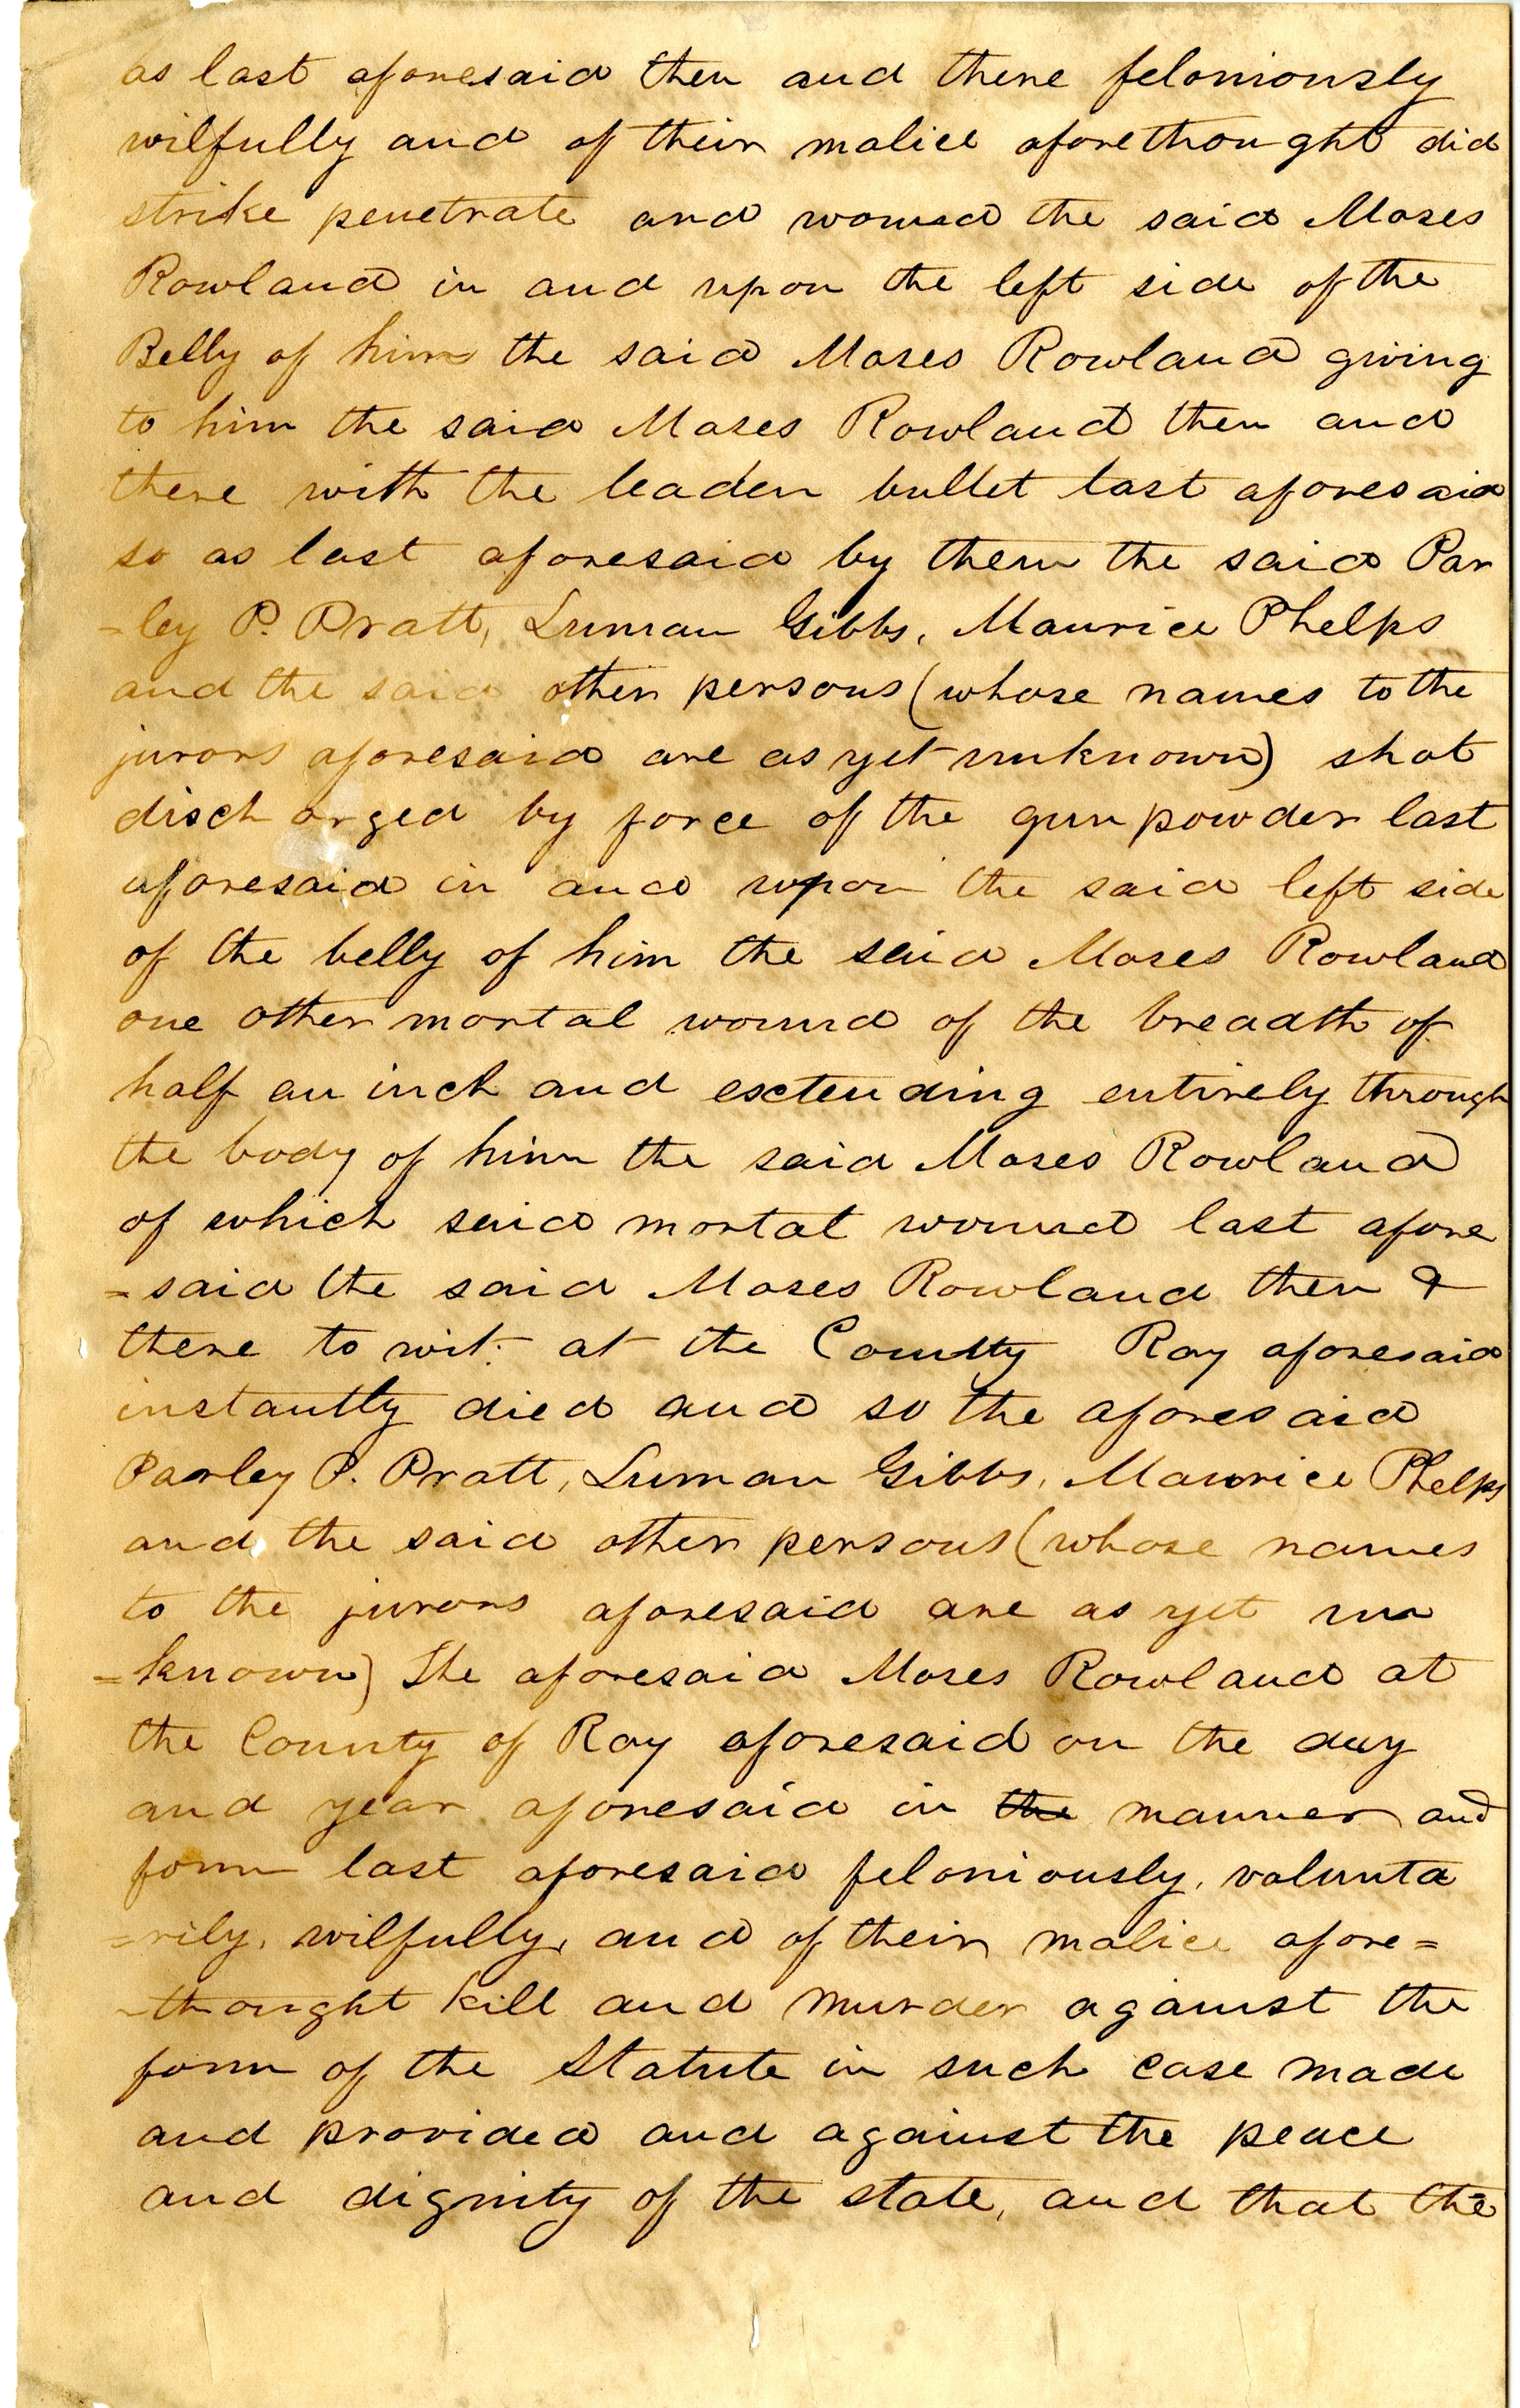 as last aforesaid then and there feloniously
wilfully and of their malice aforethought did
strike penetrate and wound the said Moses
Rowland in and upon the left side of the
Belly of him the said Moses Rowland giving
to him the said Moses Rowland then and
there with the leaden bullet last aforesaid
so as last aforesaid by them the said Par
=ley P. Pratt, Luman Gibbs, Maurice Phelps
and the said other persons (whose names to the
jurors aforesaid are as yet unknown) shot
discharged by force of the gunpowder last
aforesaid in and upon the said left side
of the belly of him the said Moses Rowland
one other mortal wound of the breadth of
half an inch and extending entirely through
the body of him the said Moses Rowland
of which said mortal wound last afore
=said the said Moses Rowland then &
there to wit: at the County Ray aforesaid
instantly died and so the aforesaid
Parley P. Pratt, Luman Gibbs, Maurice Phelps
and the said other persons (whose names
to the jurors aforesaid are as yet un
=known) The aforesaid Moses Rowland at
the County of Ray aforesaid on the day
and year aforesaid in the manner and
form last aforesaid feloniously, volunta
=rily, wilfully, and of their malice afore=
-thought kill and murder against the
form of the Statute in such case made
and provided and against the peace
and dignity of the state, and that the